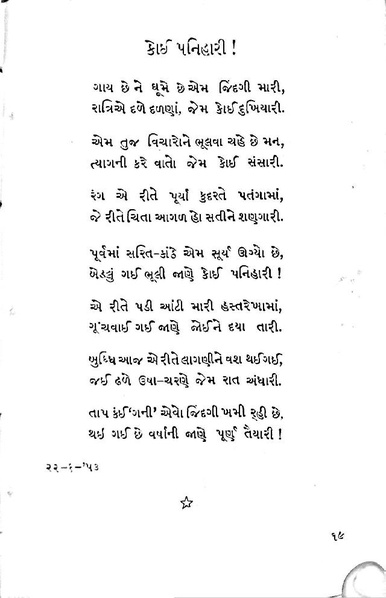 કોઈ પનિહારી !
ગાય છે ને ઘૂમે છે એમ જિંદગી મારી,
રાત્રિએ દળે દળણાં, જેમ કોઈ દુખિયારી.
એમ તુજ વિચારોને ભૂલવા ચહે છે મન,
ત્યાગની કરે વાતો જેમ કોઈ સંસારી.
રંગ એ રીતે પૂર્યા કુદરતે પતંગામાં,
જે રીતે ચિતા આગળ હો સતીને શણગારી.
પૂર્વમાં સરિત-કાંઠે એમ સૂર્ય ઊગ્યો છે,
બેડલું ગઈ ભૂલી જાણે કોઈ પનિહારી !
એ રીતે પડી આંટી મારી હસ્તરેખામાં,
ગૂંચવાઈ ગઈ જાણે જોઈને દયા તારી.
બુધ્ધિ આજ એ રીતે લાગણીને વશ થઈ ગઈ,
જઈ ઢળે ઉષા-ચરણે જેમ રાત અંધારી.
તાપ કંઈ ‘ગની’ એવો જિંદગી ખમી રહી છે,
થઇ ગઈ છે વર્ષાની જાણે પૂર્ણ તૈયારી !
૨૨-૬-’૫૩
૧૯